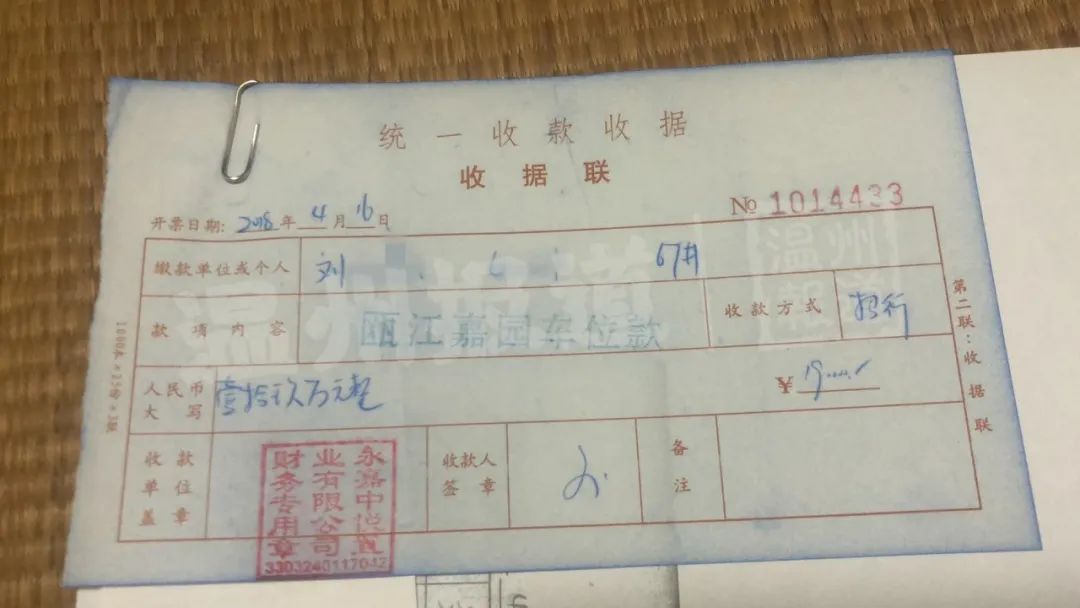 统一收款收据
收据联
№ 1014433
开票日期: 2018年4月16日
缴款单位或个人 刘
款项内容 瓯江嘉园车位款 收款方式 招行
人民币大写 壹拾玖万元整 ¥
收款单位盖章 收款人签章 备注
永嘉中
业有限公司
财务专用章
3303240117042
第二联:收据联
温州